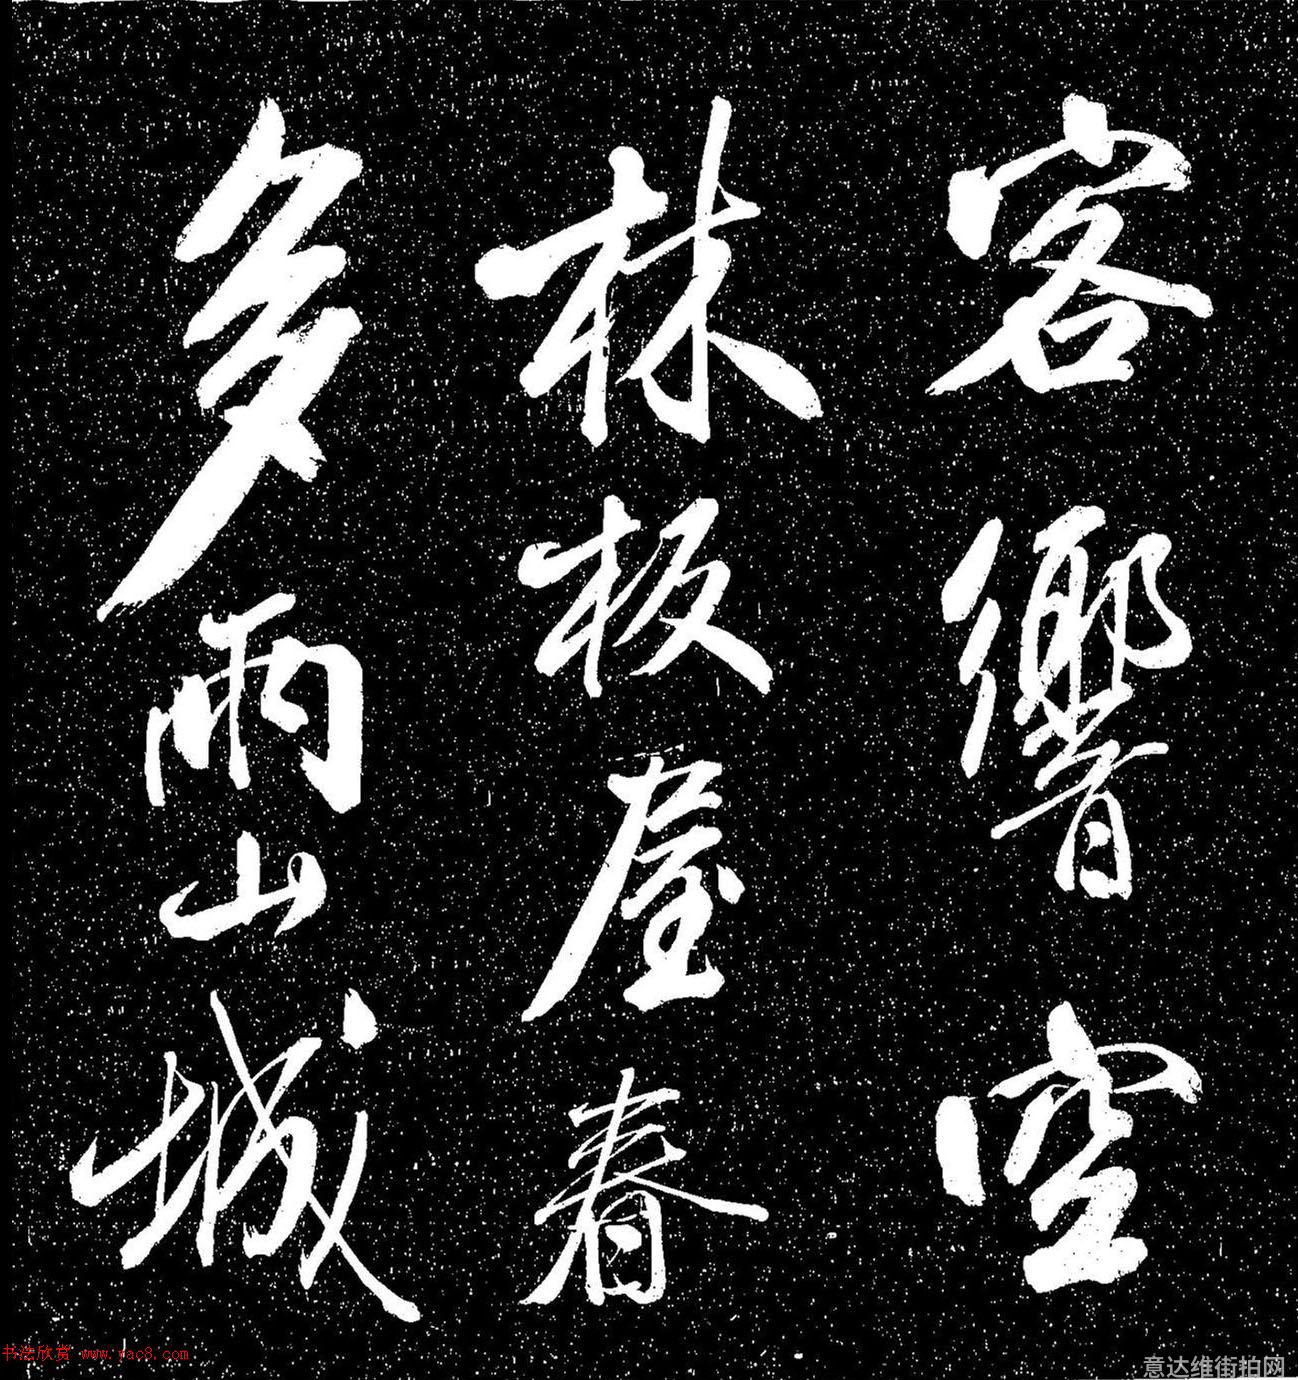 客響空
林板屋春
多雨山城
书法欣赏 www.yac8.com
意达维街拍网